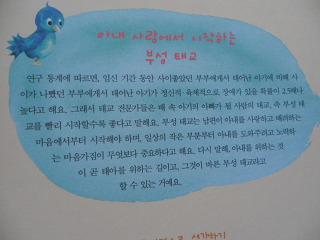 아내 사랑에서 시작하는
부성 태교
연구 통계에 따르면, 임신 기간 동안 사이좋았던 부부에게서 태어난 아기에 비해 사
이가 나빴던 부부에게서 태어난 아기가 정신적·육체적으로 장애가 있을 확률이 2.5배나
높다고 해요. 그래서 태교 전문가들은 배 속 아기의 아빠가 될 사람의 태교, 즉 부성 태
교를 빨리 시작할수록 좋다고 말해요. 부성 태교는 남편이 아내를 사랑하고 배려하는
마음에서부터 시작해야 하며, 일상의 작은 부분부터 아내를 도와주려고 노력하
는 마음가짐이 무엇보다 중요하다고 해요. 다시 말해, 아내를 위하는 것
이 곧 태아를 위하는 길이고, 그것이 바른 부성 태교라고
할 수 있는 거예요.
생각하기